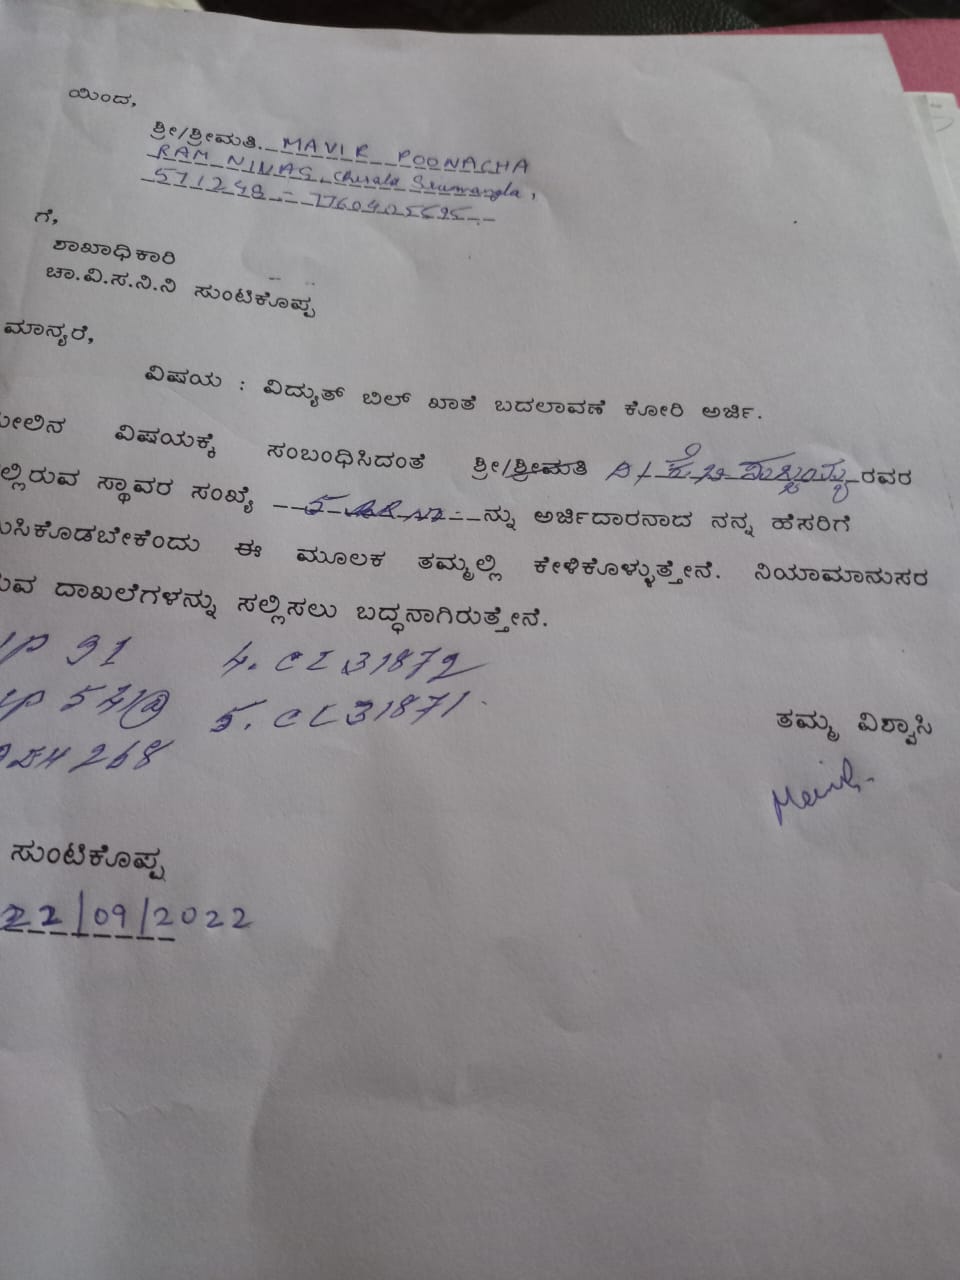 ಯಿಂದ,
ಶ್ರೀ/ಶ್ರೀಮತಿ. MAVIR POONACHA
RAM NIVAS, Cherala Srumangla,
571248 - 7760405695
ಗೆ,
ಶಾಖಾಧಿಕಾರಿ
ಚಾ.ವಿ.ಸ.ನಿ.ನಿ ಸುಂಟಿಕೊಪ್ಪ
ಮಾನ್ಯರೆ,
ವಿಷಯ : ವಿದ್ಯುತ್ ಬಿಲ್ ಖಾತೆ ಬದಲಾವಣೆ ಕೋರಿ ಅರ್ಜಿ.
ಮೇಲಿನ ವಿಷಯಕ್ಕೆ ಸಂಬಂಧಿಸಿದಂತೆ ಶ್ರೀ/ಶ್ರೀಮತಿ ರವರ
ಲ್ಲಿರುವ ಸ್ಥಾವರ ಸಂಖ್ಯೆ 5 ನ್ನು ಅರ್ಜಿದಾರನಾದ ನನ್ನ ಹೆಸರಿಗೆ
ಸಿಕೊಡಬೇಕೆಂದು ಈ ಮೂಲಕ ತಮ್ಮಲ್ಲಿ ಕೇಳಿಕೊಳ್ಳುತ್ತೇನೆ. ನಿಯಾಮಾನುಸರ
ವ ದಾಖಲೆಗಳನ್ನು ಸಲ್ಲಿಸಲು ಬದ್ಧನಾಗಿರುತ್ತೇನೆ.
P 91 4. CL31872
P 54 5. CL31871
268
ತಮ್ಮ ವಿಶ್ವಾಸಿ
ಸುಂಟಿಕೊಪ್ಪ
22/09/2022